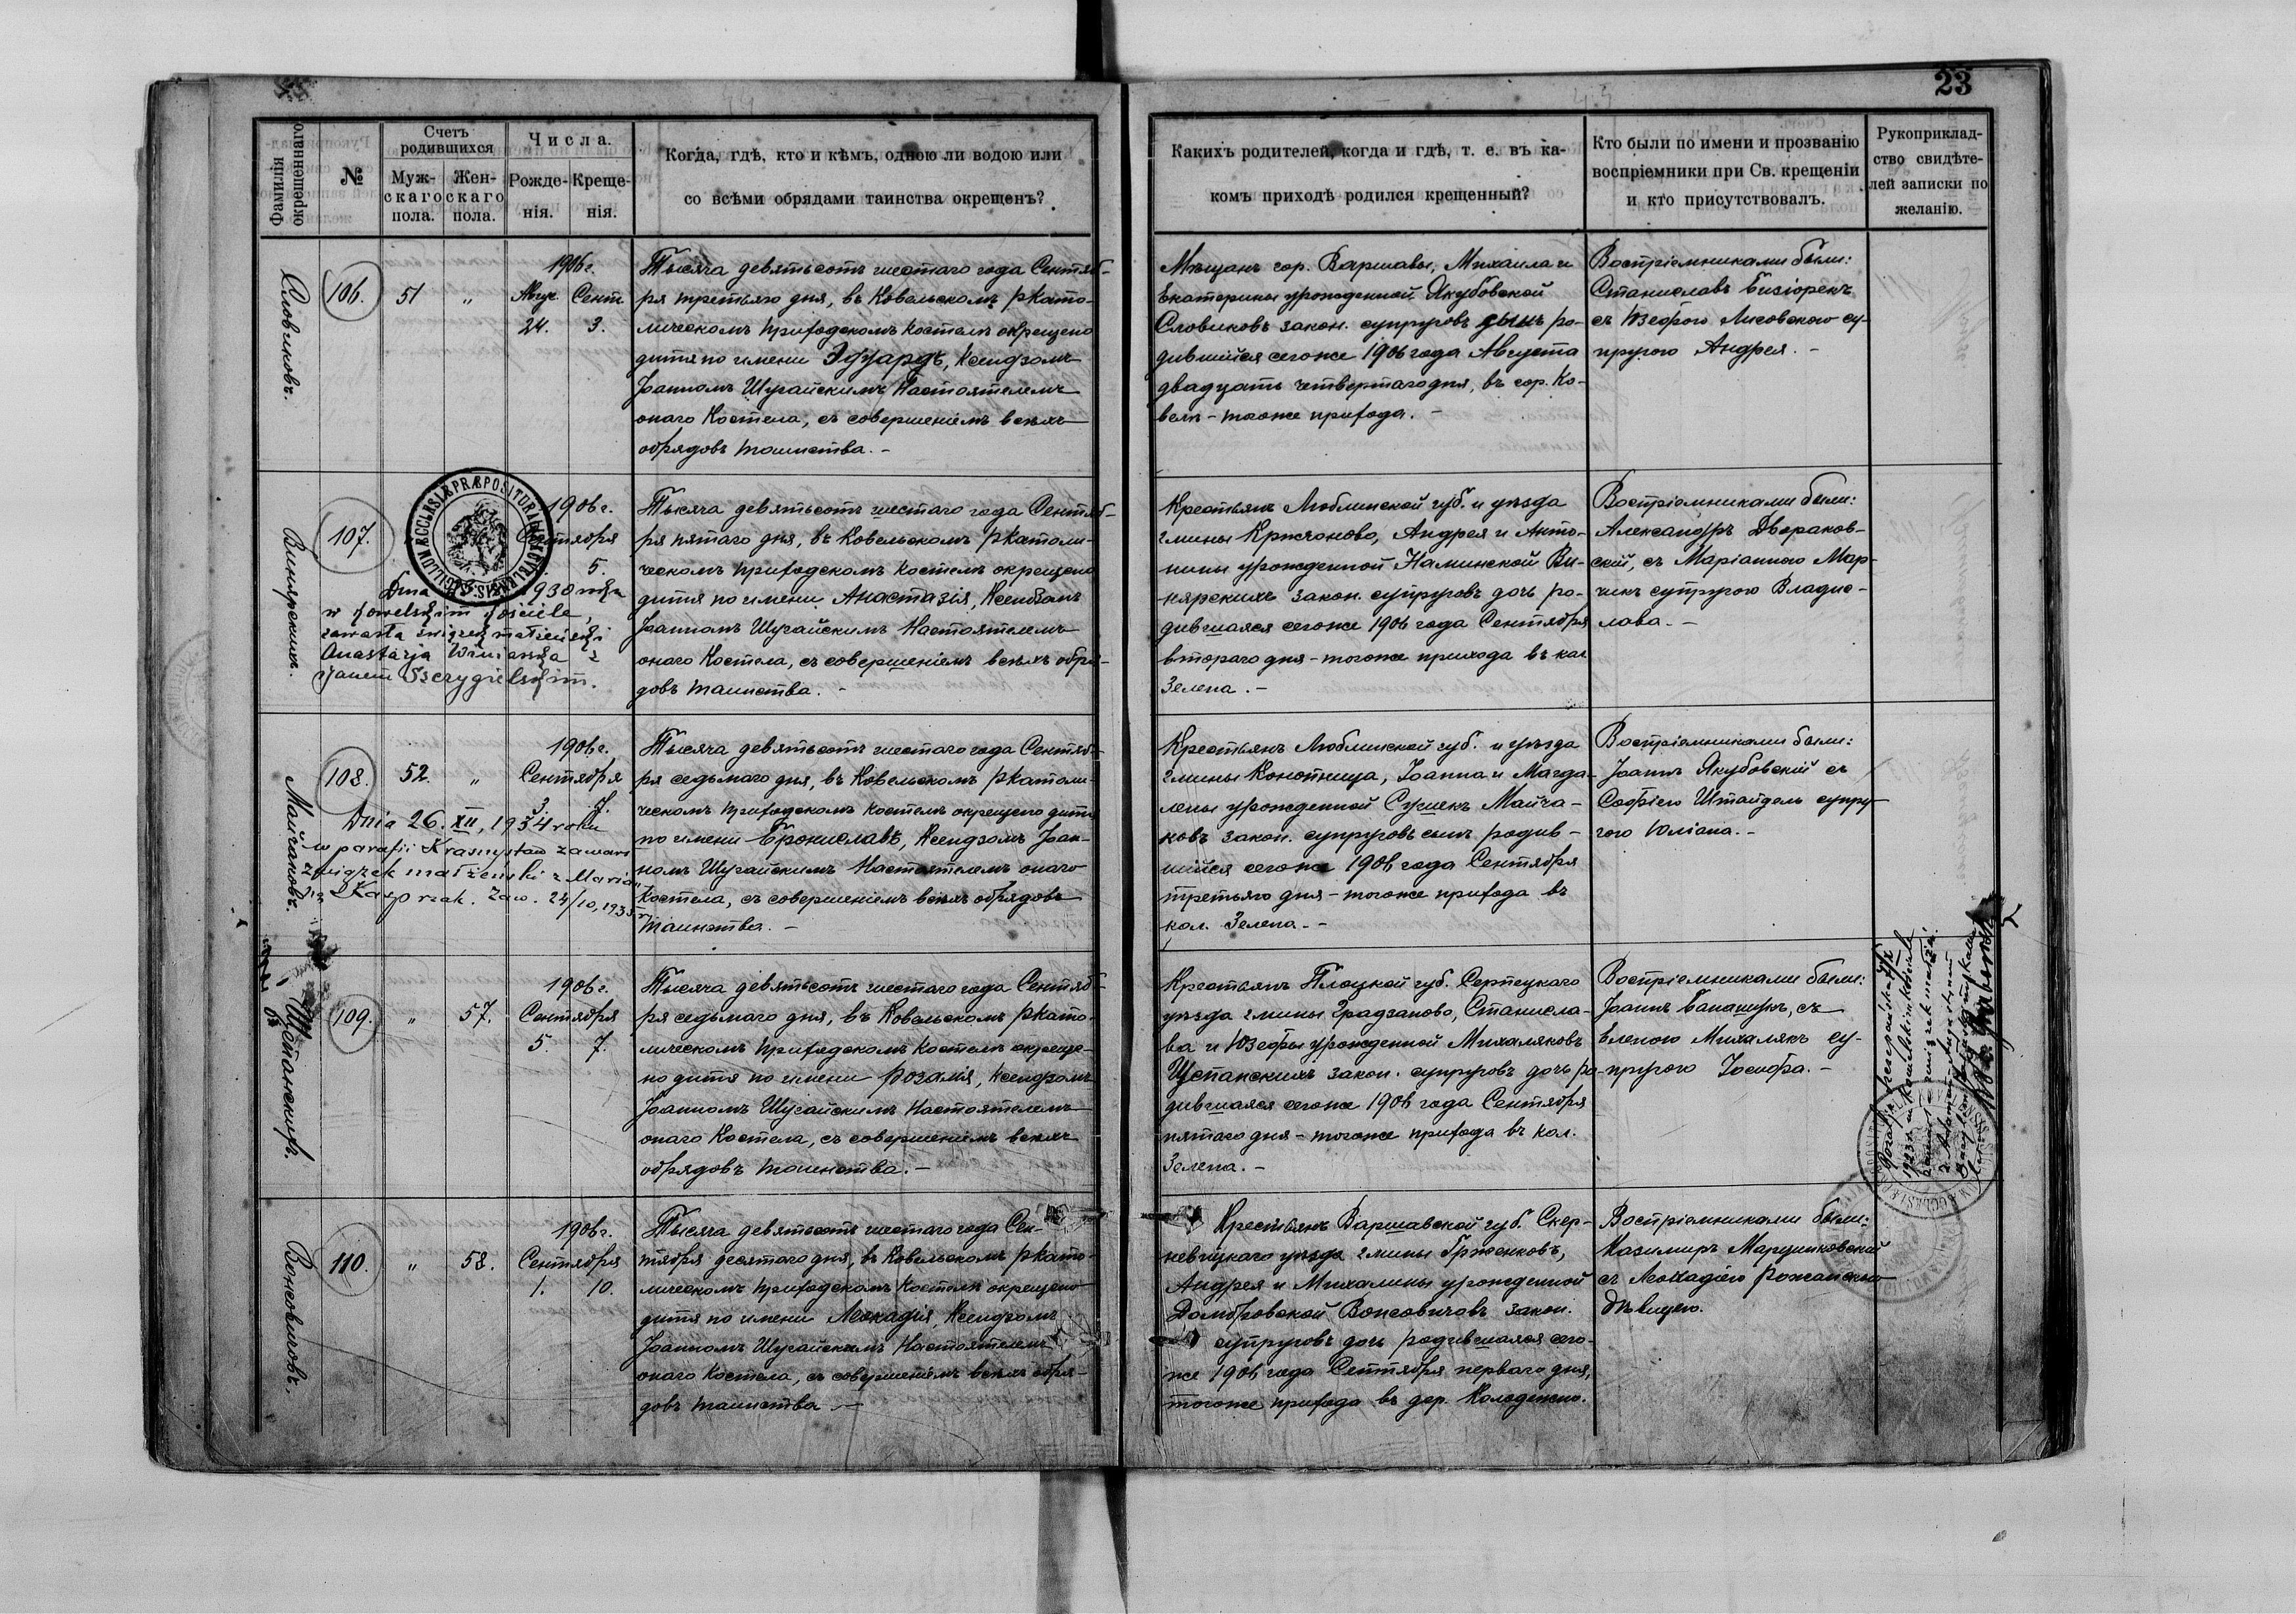 23
Фамилія
окрещеннаго
№
Счетъ
родившихся
Муж-
скаго
пола.
Жен-
скаго
пола.
Числа.
Рожде-
нія.
Креще-
нія.
Когда, гдѣ, кто и кѣмъ, одною ли водою или
со всѣми обрядами таинства окрещенъ?
Какихъ родителей, когда и гдѣ, т. е. въ ка-
комъ приходѣ родился крещенный?
Кто были по имени и прозванію
воспріемники при Св. крещеніи
и кто присутствовалъ.
Рукоприклад-
ство свидѣте-
лей записки по
желанію.
Словиковъ.
106.
51
"
1906 г.
Авгус. Сент.
24. 3.
Тысяча девятьсотъ шестаго года Сентяб-
ря третьяго дня, въ Ковельскомъ ркато-
лическомъ приходскомъ костелѣ окрещено
дитя по имени Эдуардъ, Ксендзомъ
Іоанномъ Шугайскимъ Настоятелемъ
онаго Костела, съ совершеніемъ всѣхъ
обрядовъ таинства. -
Мѣщанъ гор. Варшавы, Михаила и
Екатерины урожденной Якубовской
Словиковъ закон. супруговъ сынъ ро-
дившійся сегоже 1906 года Августа
двадцать четвертаго дня, въ гор. Ко-
велѣ - тогоже прихода. -
Воспріемниками были:
Станиславъ Бизіорекъ
съ Юзефою Лисовскою су-
пругою Андрея. -
Винярскихъ.
107.
SIGILLUM ECCLESIÆ PRÆPOSITURALIS KOVELENSIS
1906 г.
Сентября
5.
Dnia 1930 roku
w Kowelskim Kościele
zawarła związek małżeński
Anastazja Winiarska z
Janem Szczygielskim.
Тысяча девятьсотъ шестаго года Сентяб-
ря пятаго дня, въ Ковельскомъ ркатоли-
ческомъ приходскомъ костелѣ окрещено
дитя по имени Анастазія, Ксендзомъ
Іоанномъ Шугайскимъ Настоятелемъ
онаго Костела, съ совершеніемъ всѣхъ обря-
довъ таинства. -
Крестьянъ Люблинской губ. и уѣзда
гмины Кржчоново, Андрея и Анто-
нины урожденной Наминской Ви-
нярскихъ закон. супруговъ дочь ро-
дившаяся сегоже 1906 года Сентября
втораго дня - тогоже прихода въ кол.
Зелена. -
Воспріемниками были:
Александръ Двораков-
скій, съ Маріанною Мар-
чикъ супругою Владис-
лава. -
Майчаковъ.
108.
52.
"
1906 г.
Сентября
3. 7.
Dnia 26. XII, 1934 roku
w parafii Krasnystaw zawarł
związek małżeński z Marią
Kasprzak. Zaw. 24/10, 1935
Тысяча девятьсотъ шестаго года Сентяб-
ря седьмаго дня, въ Ковельскомъ ркатоли-
ческомъ приходскомъ костелѣ окрещено дитя
по имени Брониславъ, Ксендзомъ Іоан-
номъ Шугайскимъ Настоятелемъ онаго
Костела, съ совершеніемъ всѣхъ обрядовъ
таинства. -
Крестьянъ Люблинской губ. и уѣзда
гмины Конопница, Іоанна и Магда-
лены урожденной Сушекъ Майча-
ковъ закон. супруговъ сынъ родив-
шійся сегоже 1906 года Сентября
третьяго дня - тогоже прихода въ
кол. Зелена. -
Воспріемниками были:
Іоаннъ Якубовскій съ
Софіею Штайдель супру-
гою Юліана. -
Щепанскихъ.
109.
"
57.
1906 г.
Сентября
5. 7.
Тысяча девятьсотъ шестаго года Сентяб-
ря седьмаго дня, въ Ковельскомъ ркато-
лическомъ приходскомъ костелѣ окреще-
но дитя по имени Розалія, Ксендзомъ
Іоанномъ Шугайскимъ Настоятелемъ
онаго Костела, съ совершеніемъ всѣхъ
обрядовъ таинства. -
Крестьянъ Плоцкой губ. Серпецкаго
уѣзда гмины Градзаново, Станисла-
ва и Юзефы урожденной Михаляковъ
Щепанскихъ закон. супруговъ дочь ро-
дившаяся сегоже 1906 года Сентября
пятаго дня - тогоже прихода въ кол.
Зелена. -
Воспріемниками были:
Іоаннъ Банашукъ, съ
Еленою Михалякъ су-
пругою Іосифа. -
Вонсовичовъ.
110.
"
58.
1906 г.
Сентября
1. 10.
Тысяча девятьсотъ шестаго года Сен-
тября десятаго дня, въ Ковельскомъ ркато-
лическомъ приходскомъ костелѣ окрещено
дитя по имени Леокадія, Ксендзомъ
Іоанномъ Шугайскимъ Настоятелемъ
онаго Костела, съ совершеніемъ всѣхъ обря-
довъ таинства -
Крестьянъ Варшавской губ. Скер-
невицкаго уѣзда гмины Грженковъ,
Андрея и Михалины урожденной
Домбровской Вонсовичовъ закон.
супруговъ дочь родившаяся сего-
же 1906 года Сентября перваго дня,
тогоже прихода въ дер. Колодежно.
Воспріемниками были:
Казимиръ Марушковскій
съ Леокадіею Рожанскою
дѣвицею.